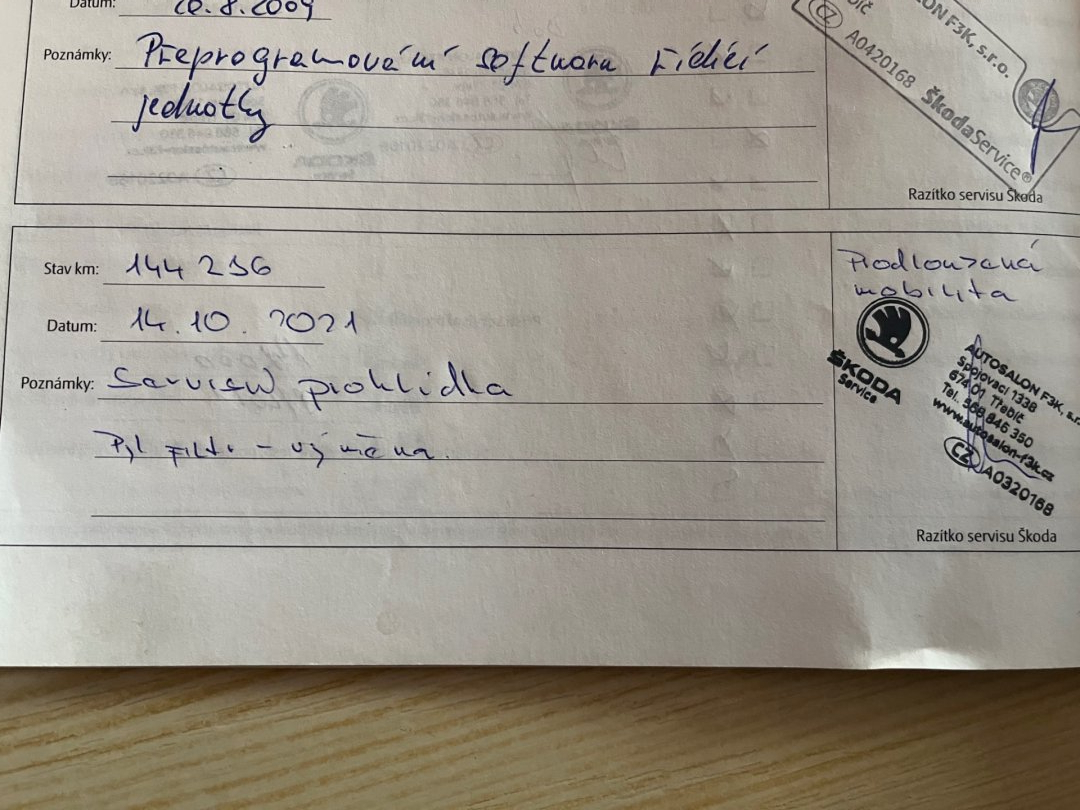 Datum: 20.8.2009
Poznámky: Přeprogramování softwaru řídící
jednotky
ON F3K, s.r.o.
CZ A0420168 ŠkodaService®
Razítko servisu Škoda
Stav km: 144 236
Datum: 14.10.2021
Poznámky: Servisní prohlídka
Pyl filtr - výměna.
Prodloužená
mobilita
ŠKODA
Service
AUTOSALON F3K, s.r.
Spojovací 1338
674 01 Třebíč
Tel. 568 846 350
www.autosalon-f3k.cz
CZ A0320168
Razítko servisu Škoda